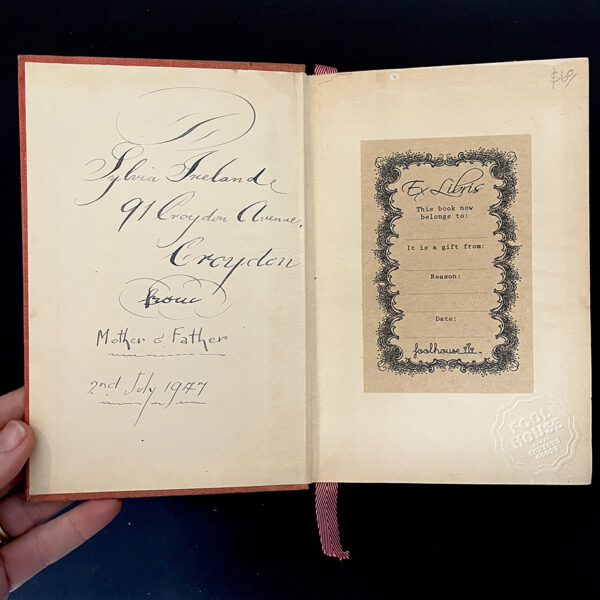 Sylvia Ireland
91 Croydon Avenue,
Croydon
from
Mother & Father
2nd July 1947
Ex Libris
This book now
belongs to:
It is a gift from:
Reason:
Date:
foolhouse
FOOL
HOUSE